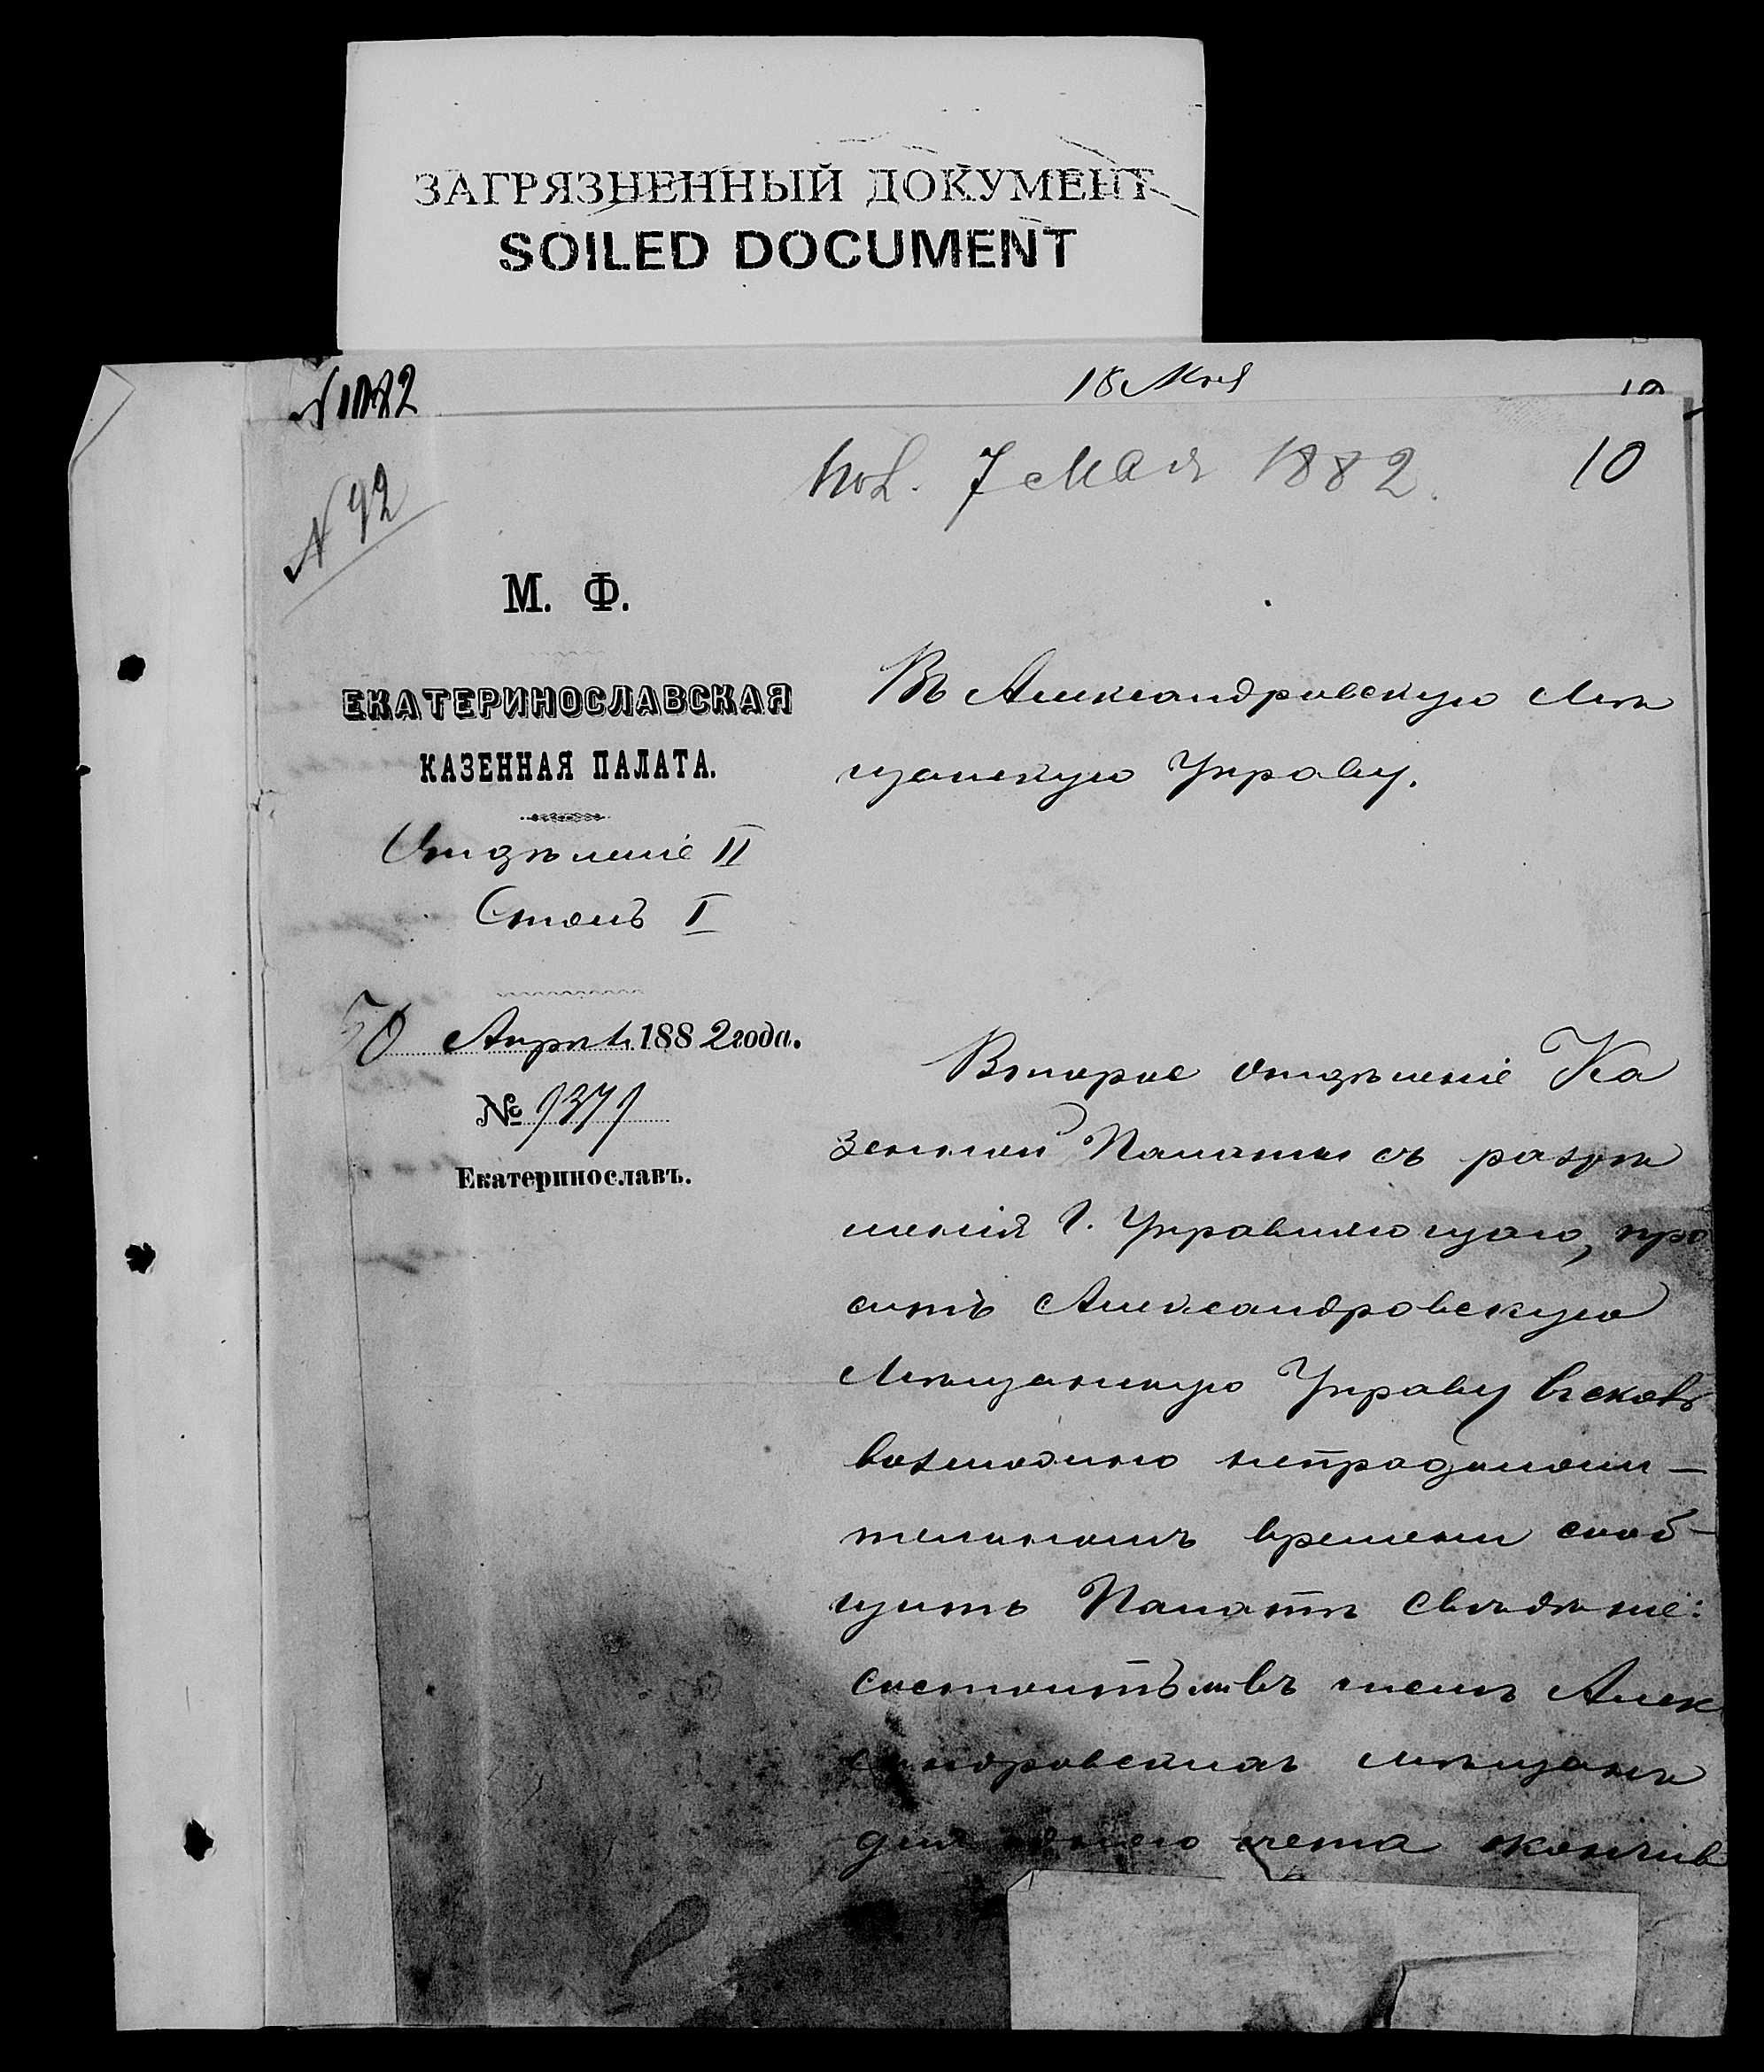 ЗАГРЯЗНЕННЫЙ ДОКУМЕНТ
SOILED DOCUMENT
18 Мая
10
7 мая 1882.
10
N 92
М. Ф.
ЕКАТЕРИНОСЛАВСКАЯ
КАЗЕННАЯ ПАЛАТА.
Отдѣленіе II
Столъ I
Апрѣл. 1882 года.
№
Екатеринославъ.
Въ Александровскую Мѣ
щанскую Управу.
Второе отдѣленіе Ка
зенной Палаты съ разрѣ
шенія Г. Управляющаго, про
ситъ Александровскую
Мѣщанскую Управу въ
возможно непродолжи-
тельномъ времени сооб-
щить Палатѣ свѣдѣніе:
состоитъ ли въ числѣ Алек
сандровскихъ мѣщанъ
для счета